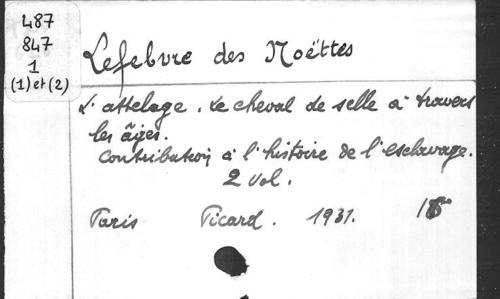 487
847
1
(1) et (2)
Lefebvre des Noëttes
L'attelage. Le cheval de selle à travers
les âges.
Contribution à l'histoire de l'esclavage.
2 vol.
Paris Picard. 1931.